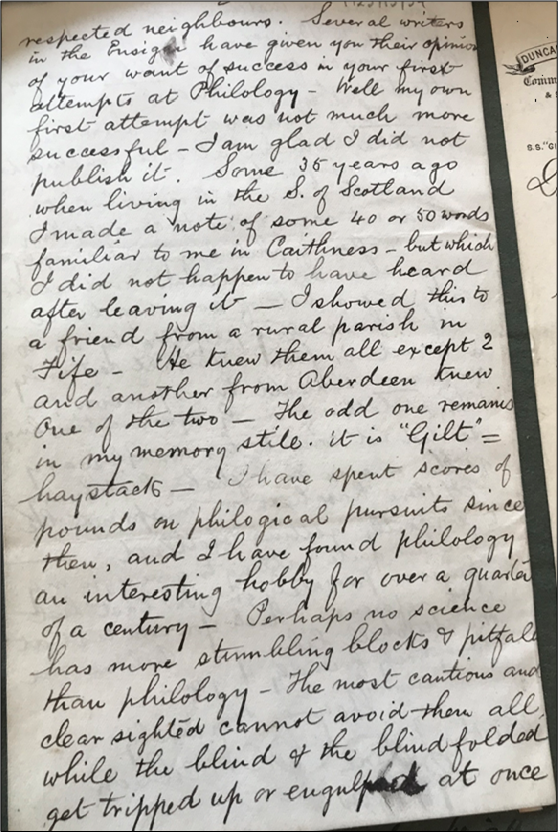 respected neighbours. Several writers
in the Ensign have given you their opinion
of your want of success in your first
attempts at Philology - Well my own
first attempt was not much more
successful - I am glad I did not
publish it. Some 35 years ago
when living in the S. of Scotland
I made a note of some 40 or 50 words
familiar to me in Caithness - but which
I did not happen to have heard
after leaving it - I showed this to
a friend from a rural parish in
Fife - He knew them all except 2
and another from Aberdeen knew
One of the two - The odd one remains
in my memory stile. it is "Gilt" =
haystack - I have spent scores of
pounds on philogical pursuits since
then, and I have found philology
an interesting hobby for over a quarter
of a century - Perhaps no science
has more stumbling blocks & pitfalls
than philology - The most cautious and
clear sighted cannot avoid them all,
while the blind & the blindfolded
get tripped up or engulped at once
DUNCAN
Comm
&
S.S. "G